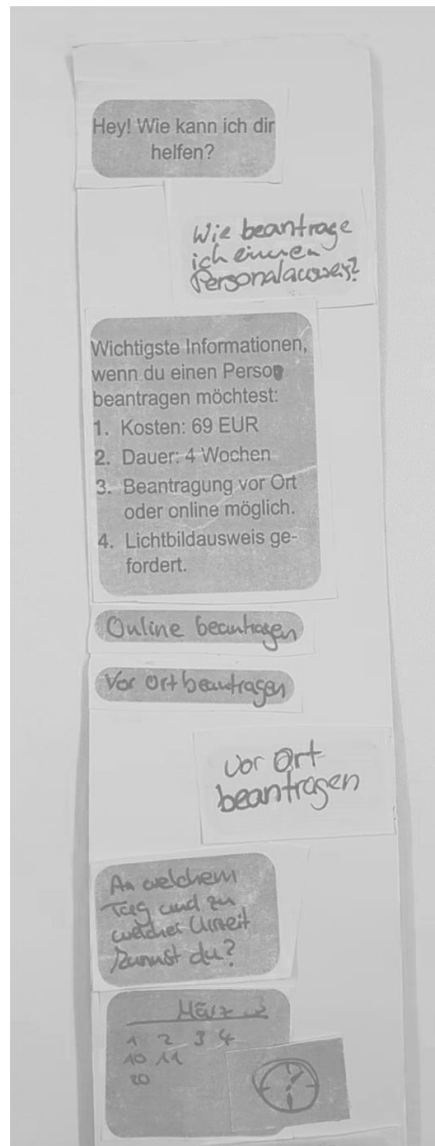 Hey! Wie kann ich dir
helfen?
Wie beantrage
ich einnen
Personalausweis?
Wichtigste Informationen,
wenn du einen Perso
beantragen möchtest:
1. Kosten: 69 EUR
2. Dauer: 4 Wochen
3. Beantragung vor Ort
oder online möglich.
4. Lichtbildausweis ge-
fordert.
Online beantragen
Vor Ort beantragen
Vor Ort
beantragen
An welchem
Tag und zu
welcher Uhrzeit
kannst du?
März
1 2 3 4
10 11
20